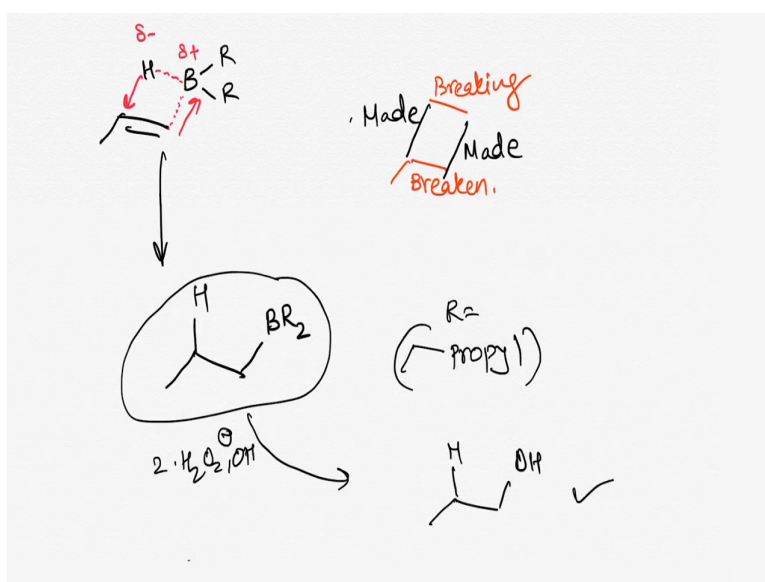 δ-
δ+
H
B
R
R
Breaking
. Made
Made
Breaken.
H
BR2
R=
( propyl)
2. H2O2, ⊖OH
H
OH